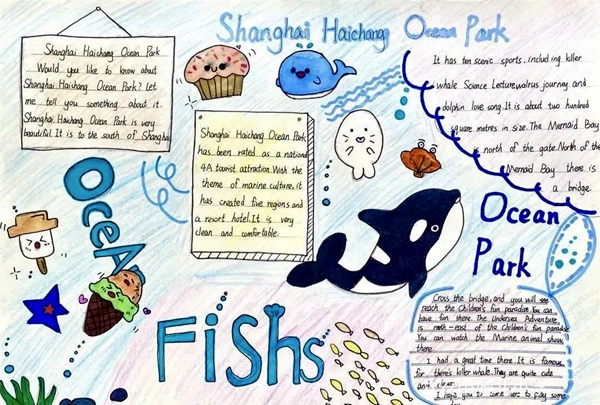 Shanghai Haichang Ocean Park
Shanghai Haichang Ocean Park
Would you like to know about
Shanghai Haishang Ocean Park? Let
me tell you something about it.
Shanghai Haichang Ocean Park is very
beautiful. It is to the south of Shanghai
Shanghai Haichang Ocean Park
has been rated as a national
4A tourist attraction. With the
theme of marine culture, it
has created five regions and
a resort hotel. It is very
clean and comfortable.
It has ten scenic sports, including killer
whale Science Lecture, walrus journey and
dolphin love song. It is about two hundred
square metres in size. The Mermaid Bay
is north of the gate. North of the
Mermaid Bay there is
a bridge.
Ocean
Ocean
Park
Fishs
Cross the bridge, and you will see
reach the Children's fun paradise. You can
have fun there. The Undersea Adventure
is north-east of the children's fun paradise
You can watch the Marine animal shows
there.
I had a great time there. It is famous
for there's killer whale. They are quite cute
and clever.
I hope you to come here to play some
day